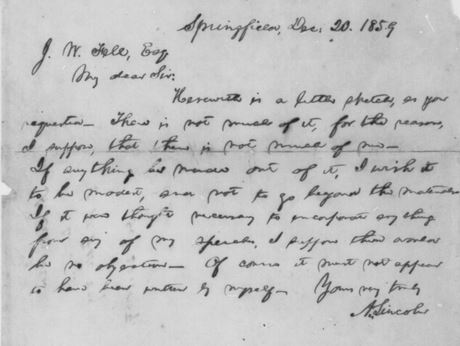 Springfield, Dec. 20. 1859
J. W. Fell, Esq
My dear Sir:
Herewith is a little sketch, as you
requested— There is not much of it, for the reason,
I suppose, that there is not much of me—
If anything be made out of it, I wish it
to be modest, and not to go beyond the materials—
If it were thought necessary to incorporate any thing
from any of my speeches, I suppose there would
be no objection— Of course it must not appear
to have been written by myself— Yours very truly
A. Lincoln